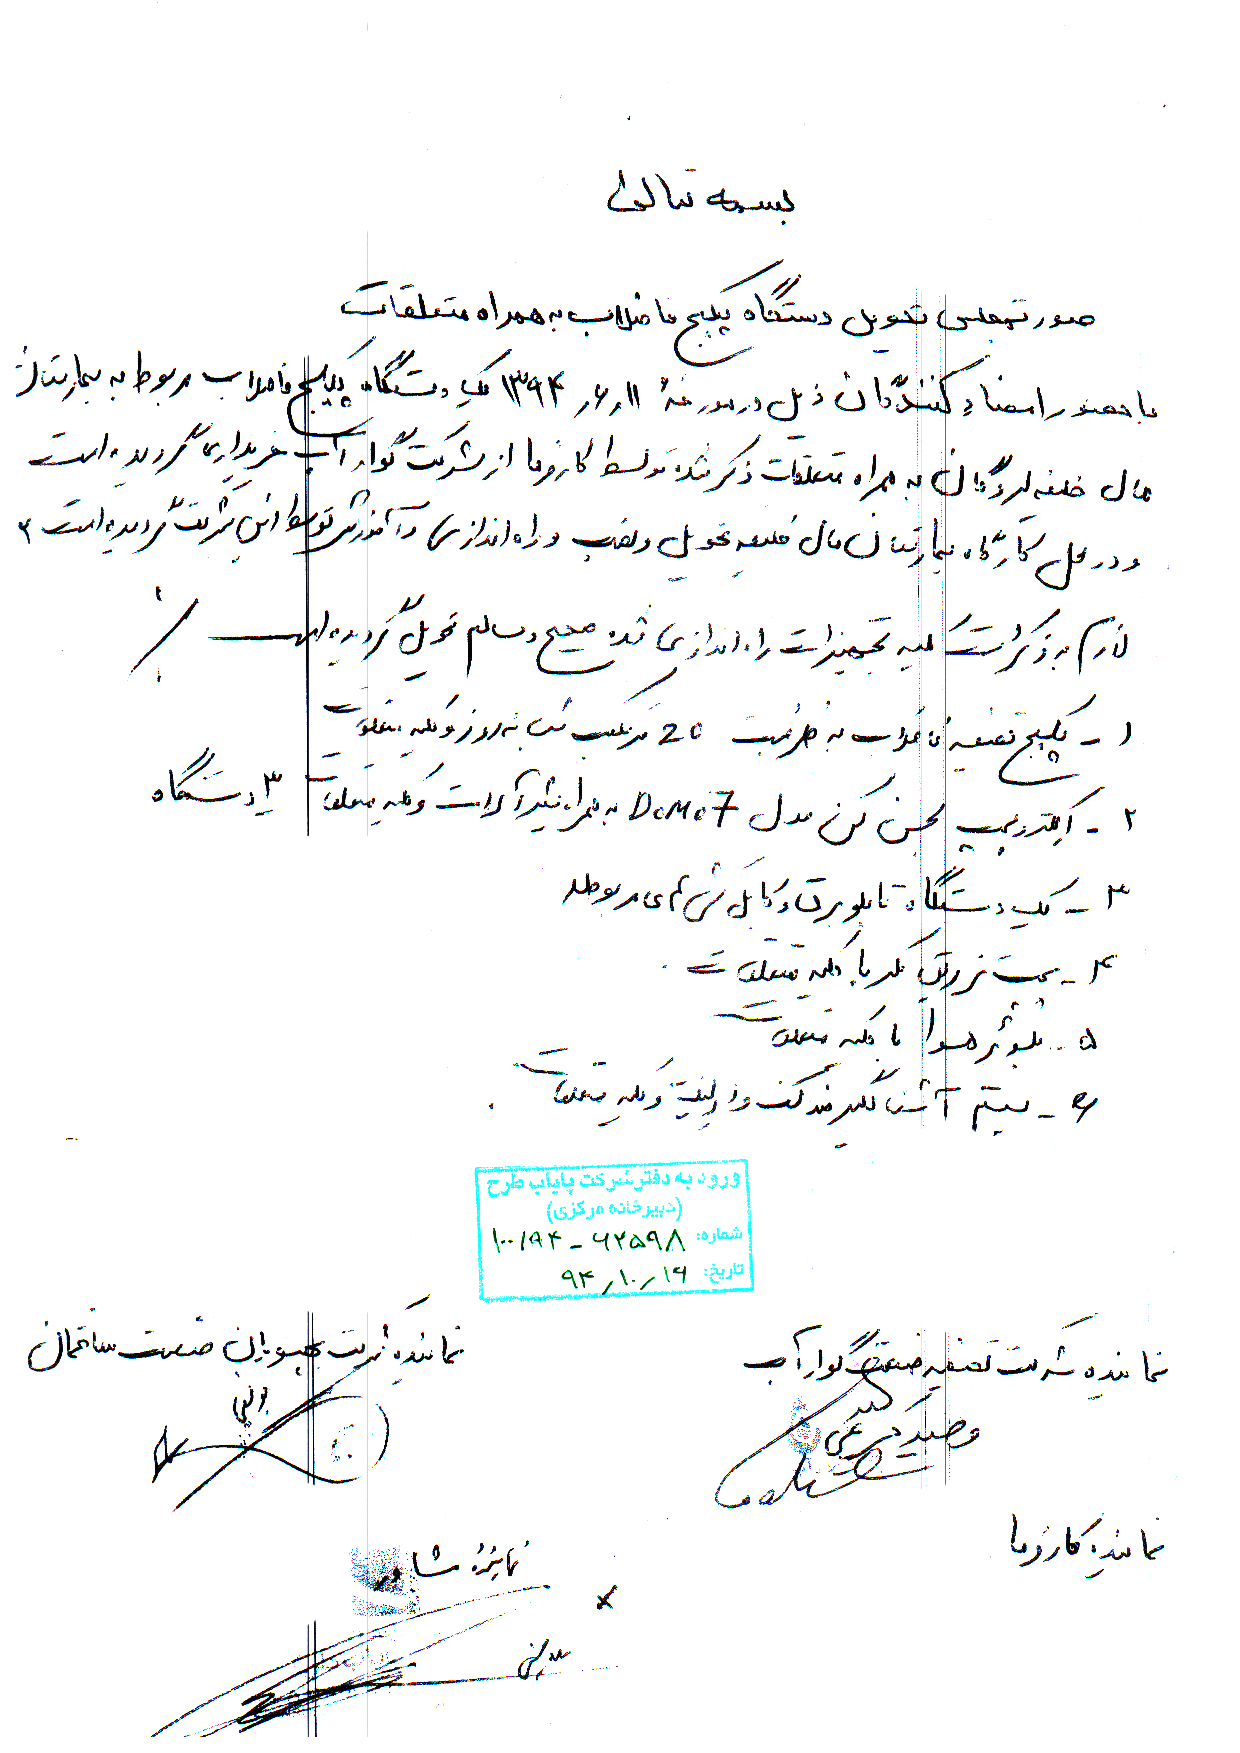 بسمه تعالی
صورتمجلس تحویل دستگاه پکیج فاضلاب به همراه متعلقات
با حضور امضاء کنندگان ذیل در مورخهٔ ۱۳۹۴٫۶٫۱۱ یک دستگاه پکیج فاضلاب مربوط به بیمارستان
مال خلیفه لردگان به همراه متعلقات ذکر شده توسط کارفرما از شرکت گوار آب خریداری گردیده است
و در محل کارگاه بیمارستان مال خلیفه تحویل و نصب و راه اندازی و آموزش توسط این شرکت گردیده است
لازم به ذکر است کلیه تجهیزات راه اندازی شده صحیح و سالم تحویل گردیده است
۱ - پکیج تصفیه فاضلاب به ظرفیت 20 متر مکعب شبانه روز و کلیه متعلقات
۲ - الکتروپمپ لجن کش مدل DOMO7 به همراه شیرآلات و کلیه متعلقات ۳ دستگاه
۳ - یک دستگاه تابلو برق و کابل کشی های مربوطه
۴ - پمپ تزریق کلر با کلیه متعلقات
۵ - بلوئر هوا با کلیه متعلقات
۶ - سیستم آشغالگیر و کلیه متعلقات
ورود به دفتر شرکت پایاب طرح
(دبیرخانه مرکزی)
شماره: ۱۰۰/۹۴ - ۶۲۵۹۸
تاریخ: ۹۴٫۱۰٫۱۶
نماینده شرکت صنعت ساختمان
نماینده شرکت تصفیه صنعت گوار آب
وحید
نماینده کارفرما
نماینده مشاور